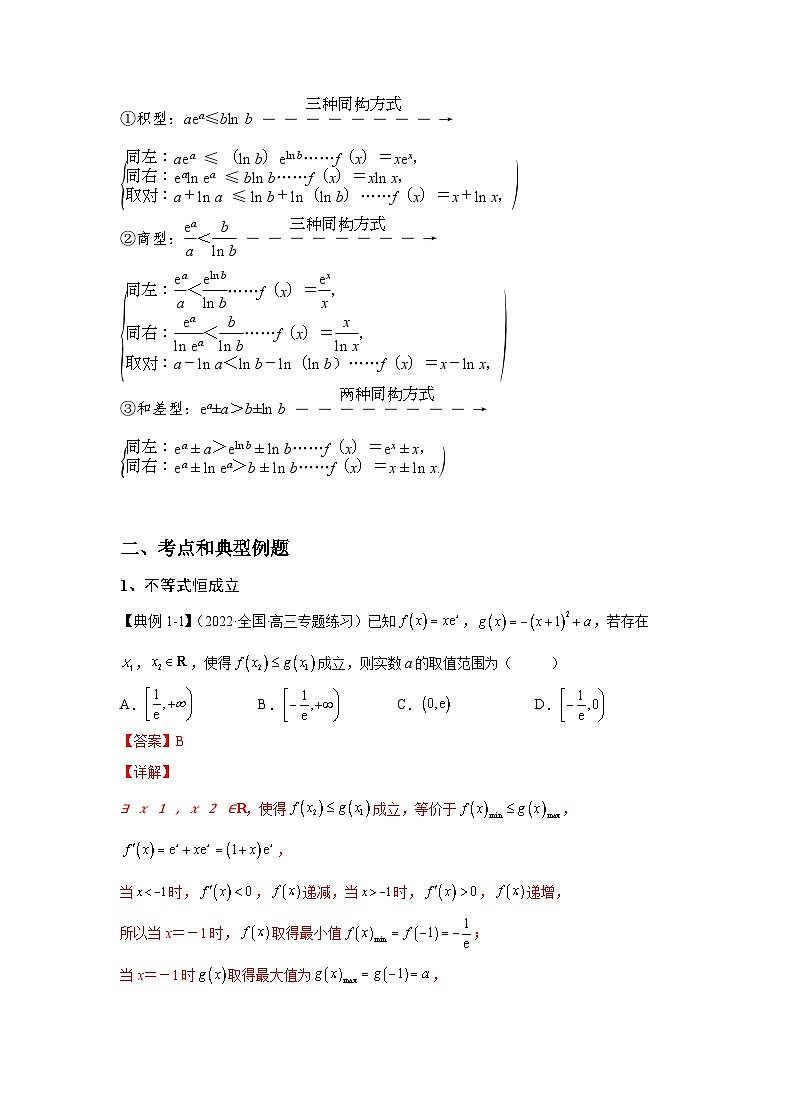 三种同构方式
①积型：aeᵃ≤bln b －－－－－－－－→
同左：aeᵃ ≤ （ln b）e^{ln b}……f（x）＝xeˣ，
同右：eᵃln eᵃ ≤ bln b……f（x）＝xln x，
取对：a＋ln a ≤ ln b＋ln（ln b）……f（x）＝x＋ln x，
三种同构方式
②商型：eᵃ/a＜b/ln b －－－－－－－－→
同左：eᵃ/a＜e^{ln b}/ln b……f（x）＝eˣ/x，
同右：eᵃ/ln eᵃ＜b/ln b……f（x）＝x/ln x，
取对：a－ln a＜ln b－ln（ln b）……f（x）＝x－ln x，
两种同构方式
③和差型：eᵃ±a＞b±ln b －－－－－－－－→
同左：eᵃ±a＞e^{ln b}±ln b……f（x）＝eˣ±x，
同右：eᵃ±ln eᵃ＞b±ln b……f（x）＝x±ln x.
二、考点和典型例题
1、不等式恒成立
【典例 1-1】（2022·全国·高三专题练习）已知 f(x)=xeˣ，g(x)=-(x+1)²+a，若存在
x₁，x₂∈R，使得 f(x₂)≤g(x₁)成立，则实数 a 的取值范围为（　　）
A．[1/e,+∞) B．[-1/e,+∞) C．(0,e) D．[-1/e,0)
【答案】B
【详解】
∃ x 1 , x 2 ∈R，使得 f(x₂)≤g(x₁)成立，等价于 f(x)min≤g(x)max，
f′(x)=eˣ+xeˣ=(1+x)eˣ，
当 x<-1时，f′(x)<0，f(x)递减，当 x>-1时，f′(x)>0，f(x)递增，
所以当 x＝－1 时，f(x)取得最小值 f(x)min=f(-1)=-1/e；
当 x＝－1 时 g(x)取得最大值为 g(x)max=g(-1)=a，